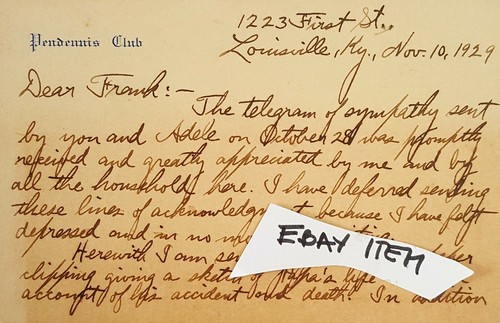 Pendennis Club
1223 First St.,
Louisville, Ky., Nov. 10, 1929
Dear Frank:—
The telegram of sympathy sent
by you and Adele on October 28 was promptly
received and greatly appreciated by me and by
all the household here. I have deferred sending
these lines of because I have felt
depressed and in no
Herewith I am
clipping giving a Papa's life
account of his accident and death. In addition
EBAY ITEM